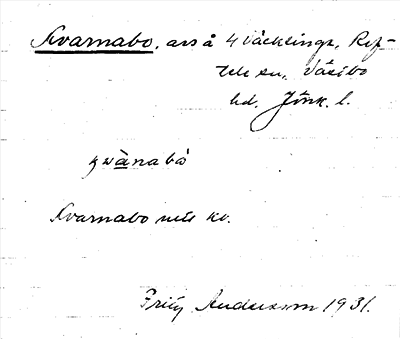 Kvarnabo, ars å 4 Väcklinge, Rif-
tele sn, Västbo
hd. Jönk. l.
kwànabò
Kvarnabo nils kv.
Fritz Andersson 1931.